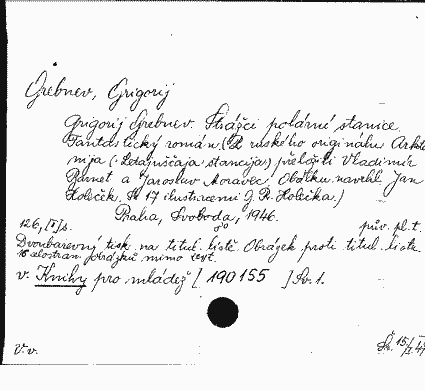 Grebnev, Grigorij
Grigorij Grebnev. Strážci polární stanice.
Fantastický román. (Z ruského originálu Arkti-
nija (: Letajuščaja stancija) přeložili Vladimír
Bernet a Jaroslav Moravec. Obálku navrhl Jan
Holeček. Se 17 ilustracemi G. R. Holečka.)
Praha, Svoboda, 1946.
8°
126, [I] s. pův. pl. t.
Dvoubarevný tisk na titul. listě. Obrázek proti titul. listu.
16 celostran. obrázků mimo text.
v. Knihy pro mládež [ 190155 ] Sv. 1.
V. v.